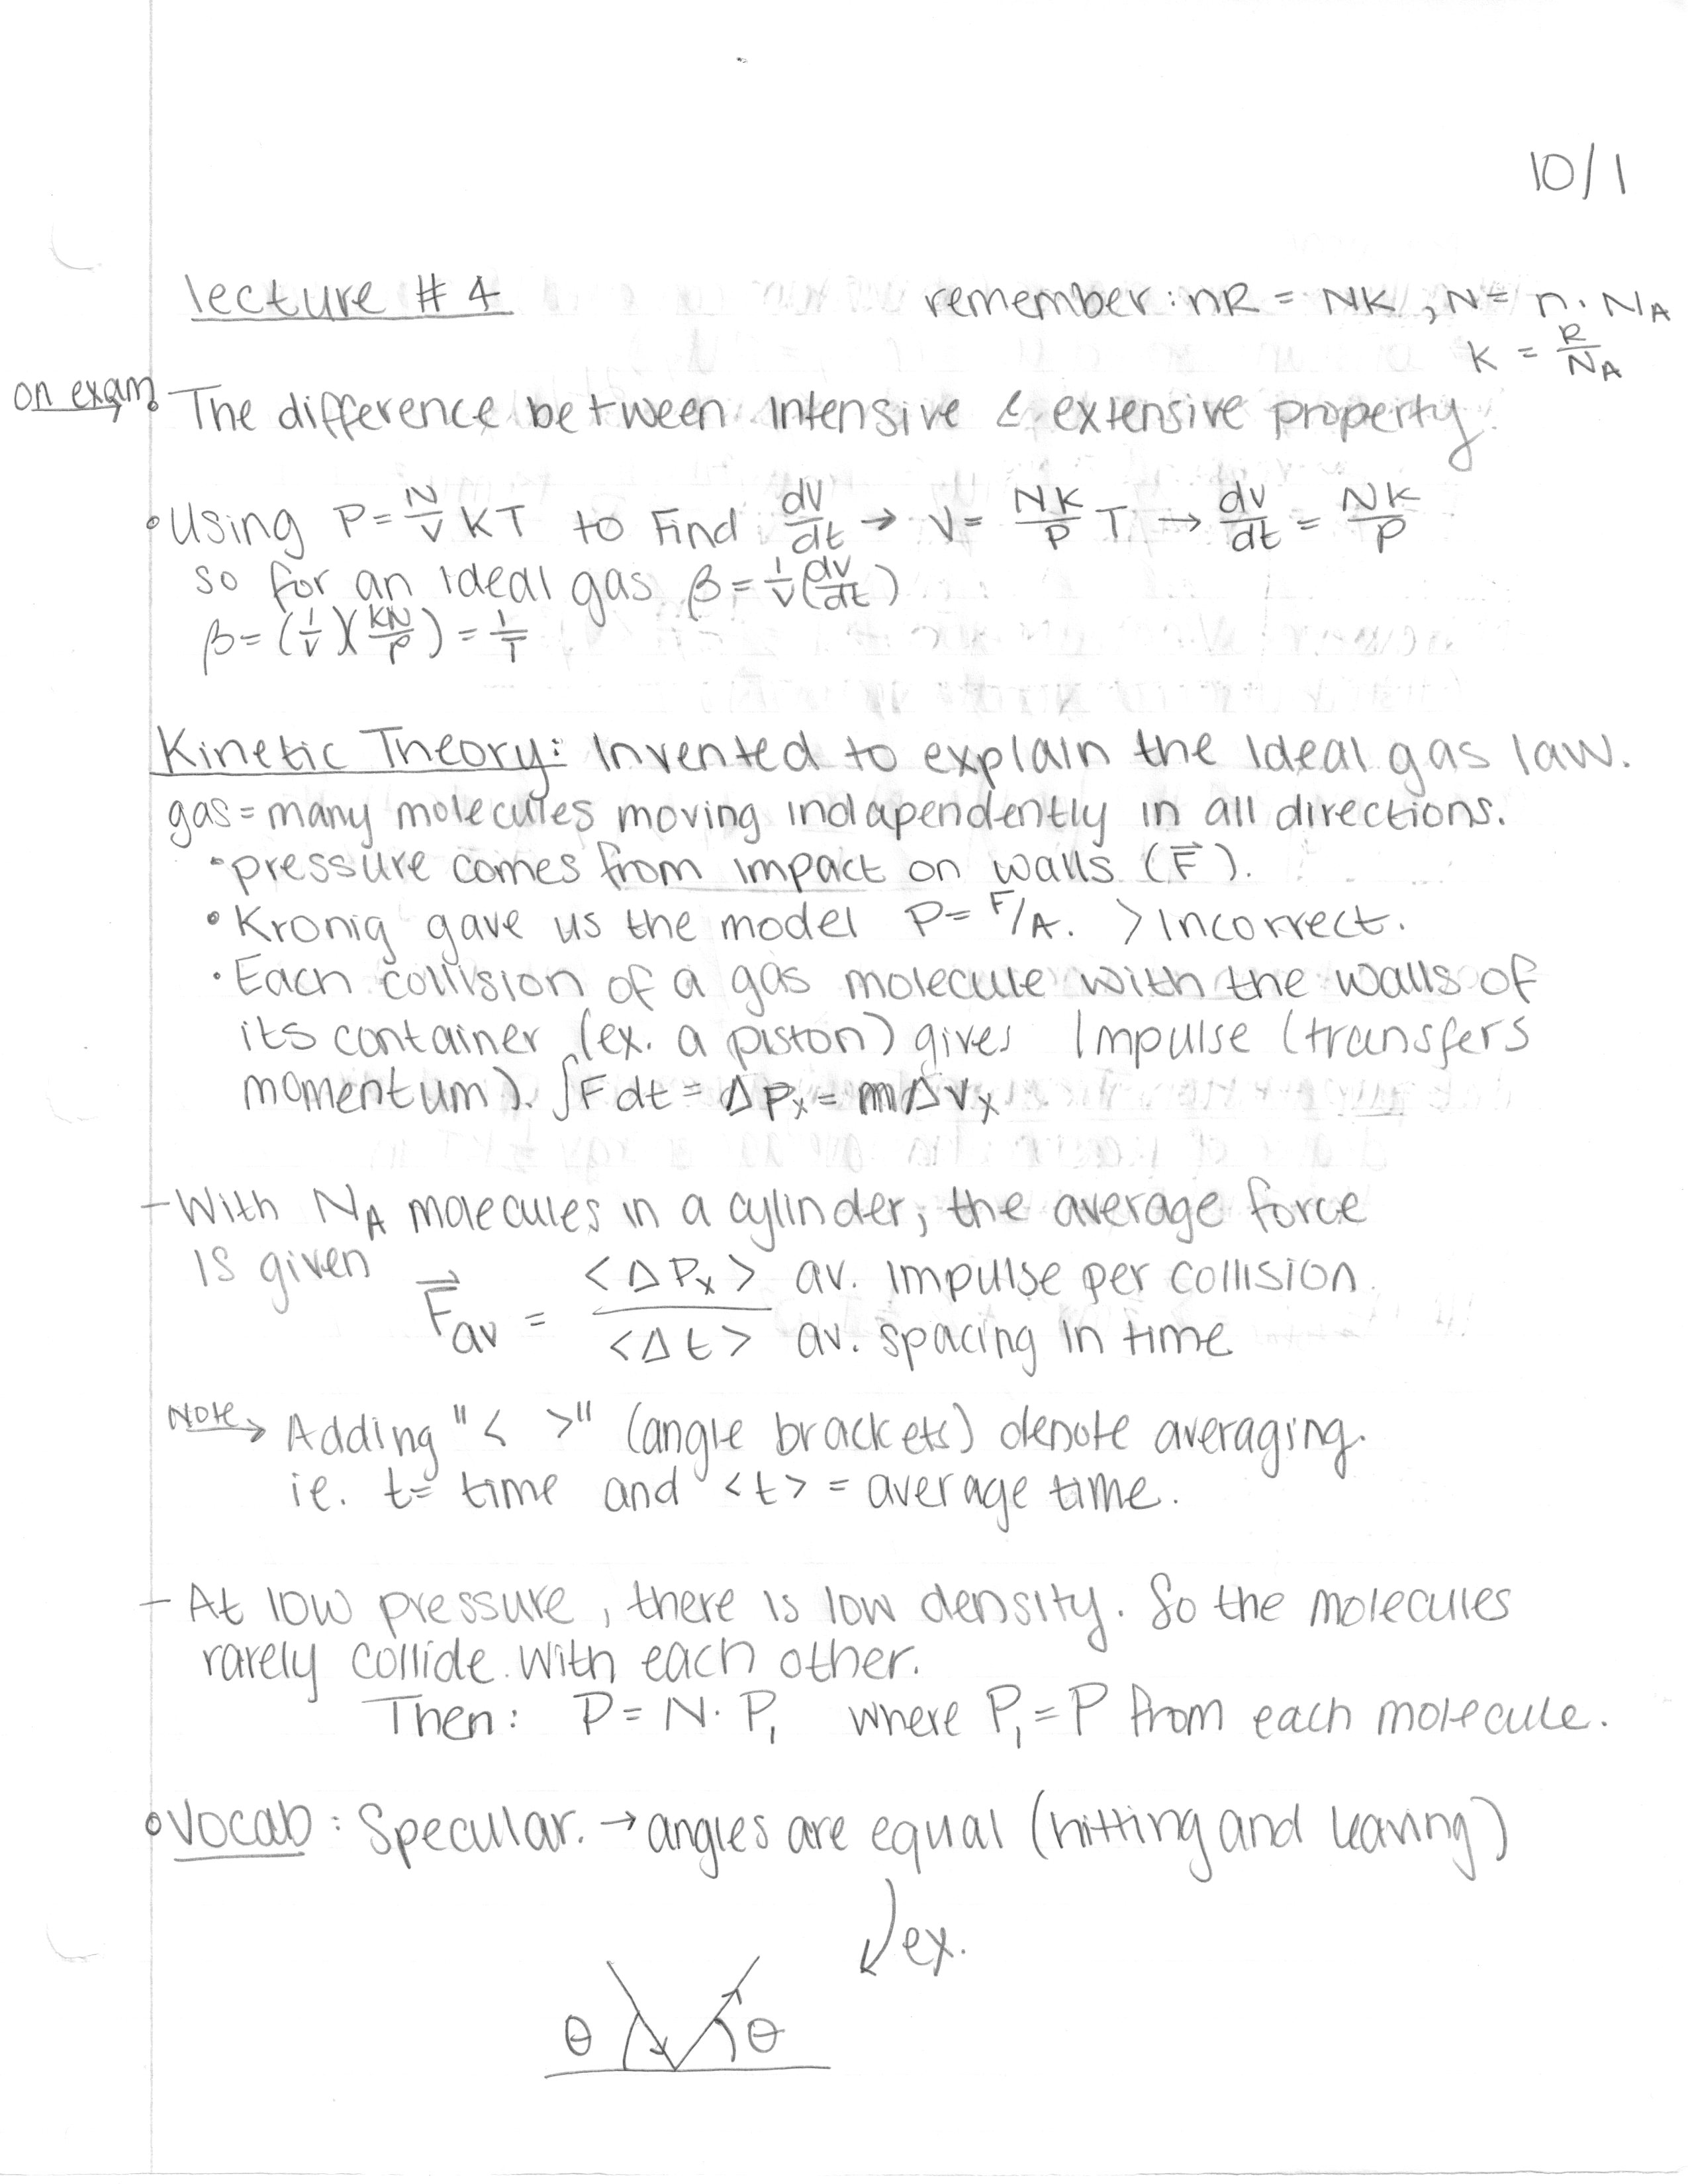 10/1
lecture # 4
remember: nR = NK, N = n · N_A
K = R/N_A
on exam
The difference between intensive & extensive property.
• Using P = N/V KT to Find dV/dt → V = NK/P T → dv/dt = NK/P
so for an ideal gas β = 1/V (dv/dt)
β = (1/V)(KN/P) = 1/T
Kinetic Theory: Invented to explain the Ideal gas law.
gas = many molecules moving indapendently in all directions.
• pressure comes from impact on walls (F⃗).
• Kronig gave us the model P = F/A. > Incorrect.
• Each collision of a gas molecule with the walls of
its container (ex. a piston) gives Impulse (transfers
momentum). ∫F dt = Δ Pₓ = mΔVₓ
- With N_A molecules in a cylinder, the average force
is given
F⃗av = <ΔPₓ> / <Δt>
av. impulse per collision.
av. spacing in time
Note → Adding "< >" (angle brackets) denote averaging.
ie. t = time and <t> = average time.
- At low pressure, there is low density. So the molecules
rarely collide with each other.
Then: P = N · P₁ where P₁ = P from each molecule.
• Vocab: Specular. → angles are equal (hitting and leaving)
ex.
θ θ